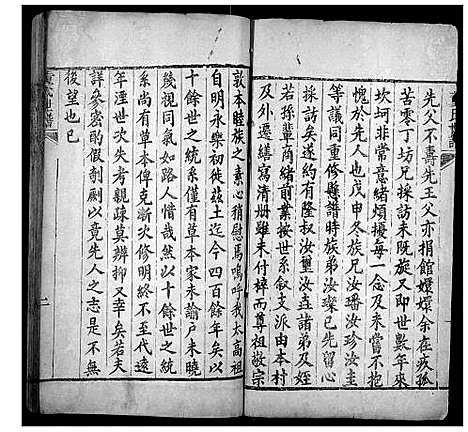 先父不壽先王父亦捐館嬛嬛余在疚孤
苦零丁坊兄採訪未旣旋又即世數年來
坎坷非常意緒煩擾每一念及未嘗不抱
愧於先人也戊申冬族兄汝璠汝珍汝圭
等議同重修縣譜時諸弟汝璨已先留心
採訪矣遂約有隆叔汝璽圭諸弟及諸
若孫輩商緒前業按世系叙支派由本村
及外遷繕寫清册雖未付梓而尊祖敬宗
敦本睦族之素心稍慰焉嗚呼我太高祖
自明永樂初徙茲土迄今四百餘年矣以
十餘世之統系僅有草本家未諭户未曉
幾視同氣如路人惜哉然以十餘世之統
系尚有草本俾克漸次修明終不至代遠
年湮世次失考親疎莫辨抑又幸矣若夫
詳參密酌假剞劂以竟先人之志是不無
後望也已
二